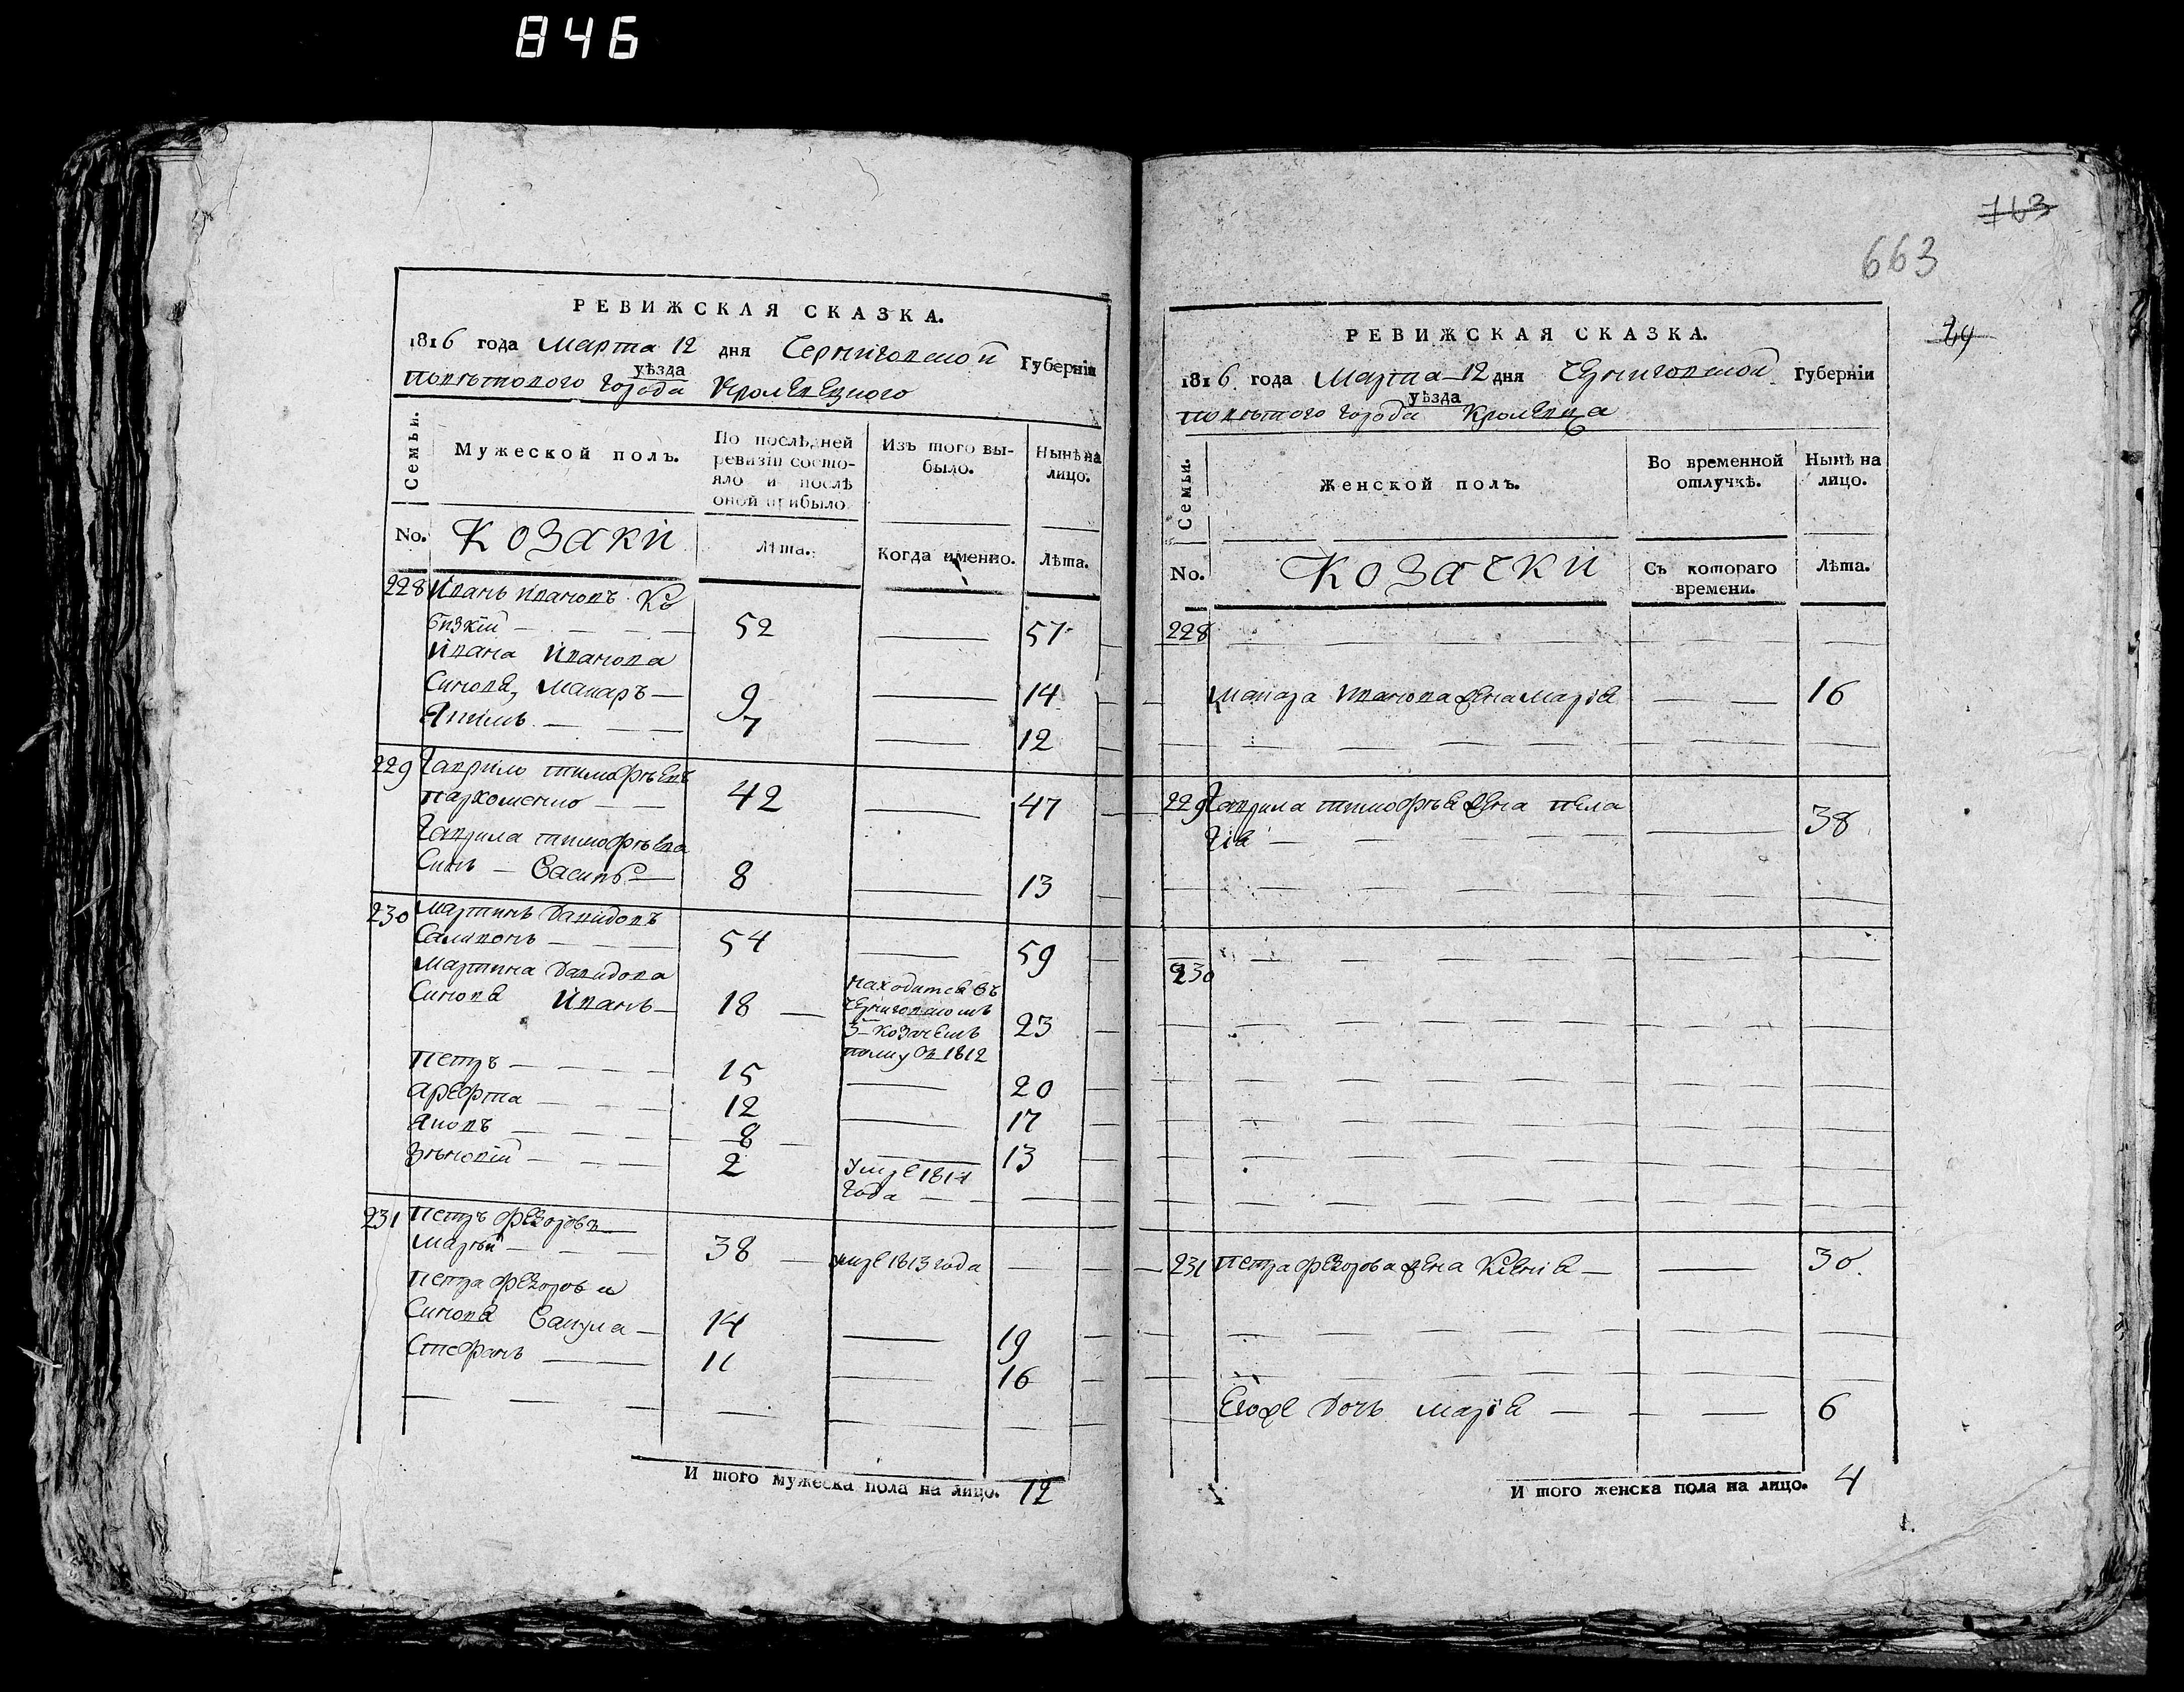 846
РЕВИЖСКАЯ СКАЗКА.
1816 года Марта 12 дня Черниговской Губерніи
уѣзда
Повѣтового Города Кролевецного
Семьи.
Мужеской полъ.
По послѣдней ревизіи состо-
яло и послѣ
оной прибыло
Изъ того вы-
было.
Нынѣ на
лицо.
No. Козаки
Лѣта.
Когда именно.
Лѣта.
228 Иванъ Ивановъ Ко
бизкій 52 57
Ивана Иванова
Синовя, Макаръ 9 14
Якимъ 7 12
229 Гаврило тимофѣевъ
пархоменко 42 47
Гаврила тимофѣева
Синъ Василь 8 13
230 Мартинъ Давидовъ
Саливонъ 54 59
Мартина Давидова
Синовя Иванъ 18 находится въ
Черниговскомъ
3 Козачемъ 23
полку съ 1812
Петръ 15 20
Арефта 12 17
Яковъ 8 13
Зѣновій 2 умре 1814
года
231 Петръ Федоровъ
Марѣй 38 умре 1813 года
Петра Федорова
Синовя Вакула 14 19
Стефанъ 11 16
И того мужеска пола на лицо. 12
763
663
РЕВИЖСКАЯ СКАЗКА.
1816 года Марта 12 дня Черниговской Губерніи
уѣзда
повѣтого города Кролевца
Семьи.
Женской полъ.
Во временной
отлучкѣ.
Нынѣ на
лицо.
No. Козачки
Съ котораго
времени.
Лѣта.
228
Макара Иванова жена Марія 16
229 Гаврила тимофѣева жена пела
гія 38
230
231 Петра Федорова жена Ксенія 30
Егоже дочь Марія 6
И того женска пола на лицо. 4